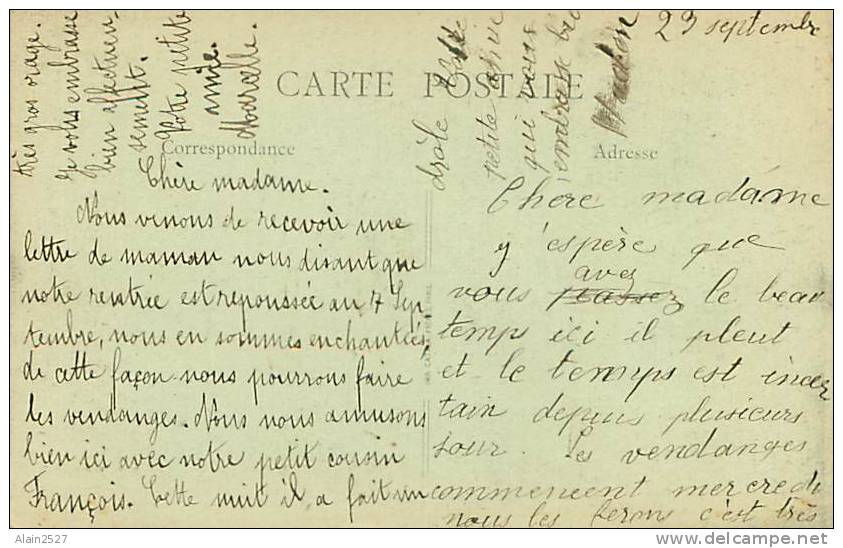 23 septembre
CARTE POSTALE
Correspondance
Chère madame.
Nous venons de recevoir une
lettre de maman nous disant que
notre rentrée est repoussée au 7 Sep
tembre, nous en sommes enchantées,
de cette façon nous pourrons faire
les vendanges. Nous nous amusons
bien ici avec notre petit cousin
François. Cette nuit il a fait un
très gros orage.
Je vous embrasse
bien affectueu-
sement.
Votre petite
amie.
Marcelle.
Adresse
Chere madame
y'espère que
avez
vous passez le beau
temps ici il pleut
et le temps est incer
tain depuis plusieurs
jour. Les vendanges
commencent mercredi
nous les ferons c'est très
drôle
petite amie
qui vous
embrasse
Alain2527
delcampe.net